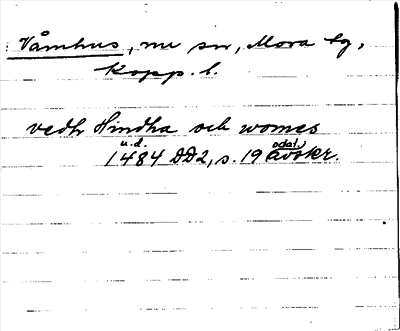 Våmhus, nu sn, Mora tg,
Kopp. l.
vedh Hindha och womes
u.d. odat.
1484 DD2, s. 19 avskr.